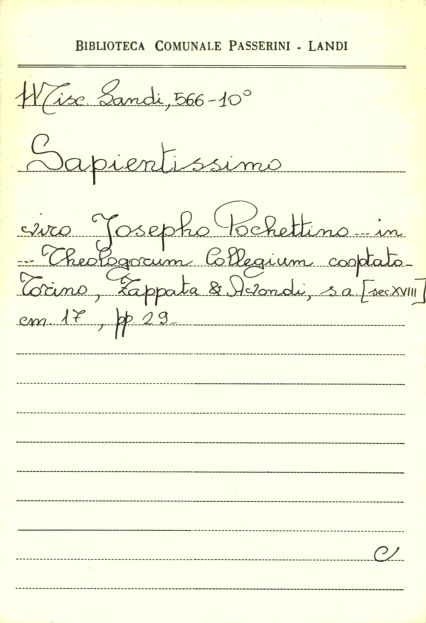 BIBLIOTECA COMUNALE PASSERINI - LANDI
Misc. Landi, 566-10°
Sapientissimo
viro Josepho Pochettino ... in
... Theologorum Collegium cooptato.
Torino, Zappata & Avondi, s.a. [sec XVIII]
cm. 17, pp 29.
C